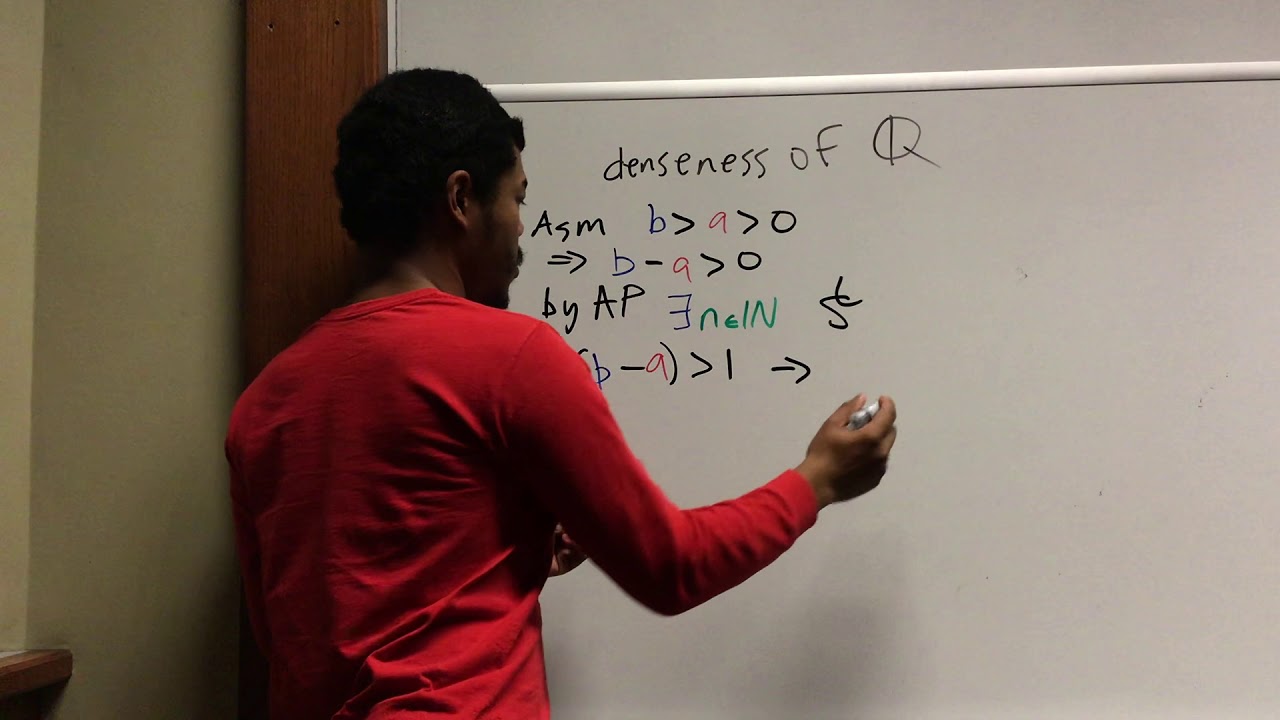 denseness of ℚ
Asm b > a > 0
⇒ b - a > 0
by AP ∃ n ∈ ℕ st
(b - a) > 1 →